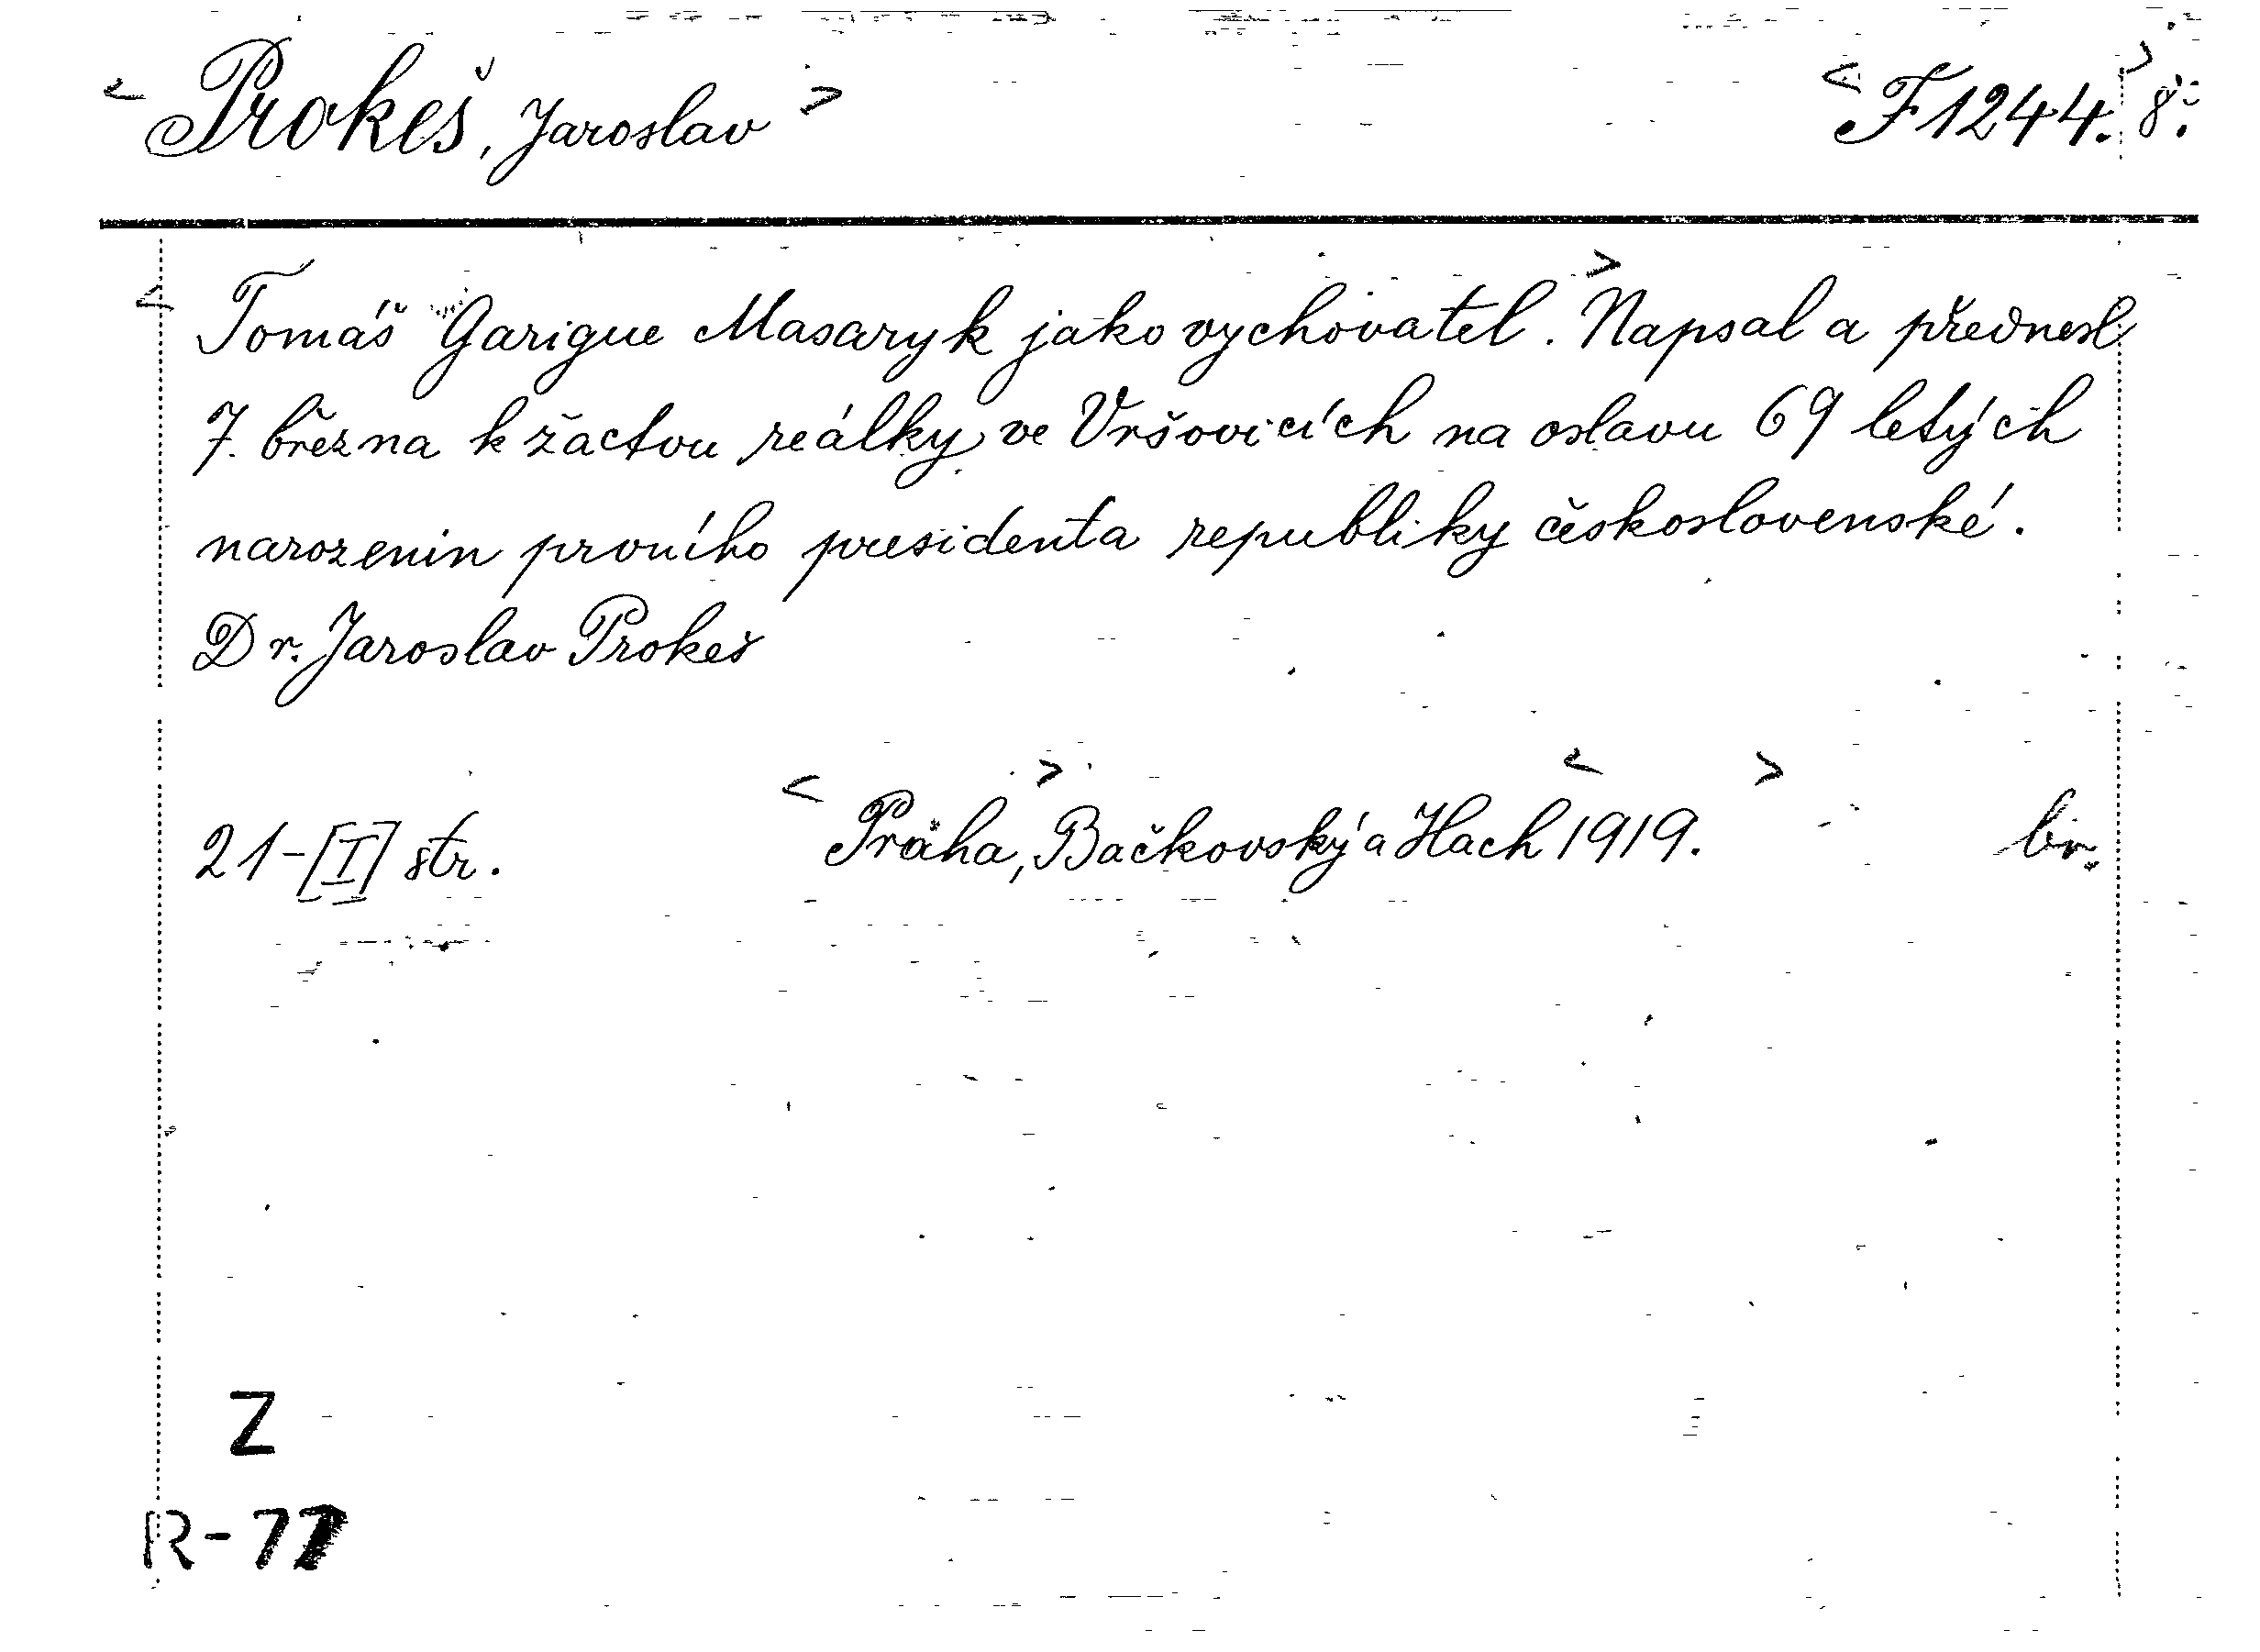 < Prokeš, Jaroslav > < F 1244. > 8°.
< Tomáš Garigue Masaryk jako vychovatel. > Napsal a přednesl
7. března k žactvu reálky ve Vršovicích na oslavu 69 letých
narozenin prvního presidenta republiky československé.
Dr. Jaroslav Prokeš
21-[I] str. < Praha, > Bačkovský a Hach < 1919. > br.
Z
R-77